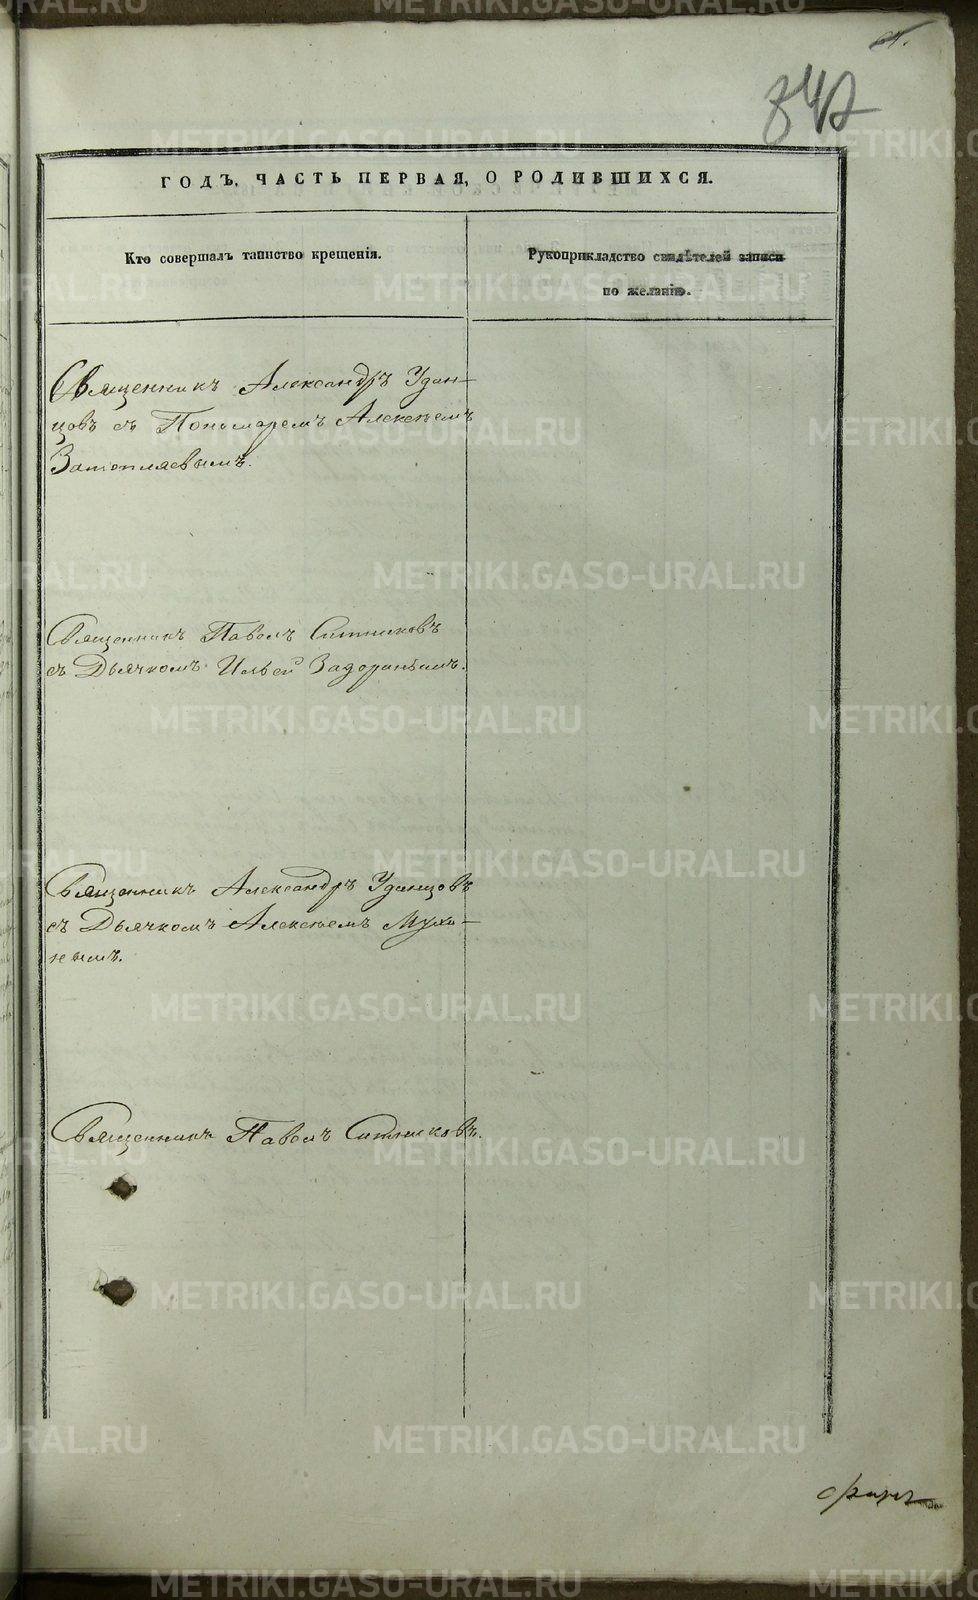 842
ГОДЪ. ЧАСТЬ ПЕРВАЯ, О РОДИВШИХСЯ.
Кто совершалъ таинство крещенія.
Рукоприкладство свидѣтелей записи
по желанію.
Священникъ Александръ Удин-
цовъ съ Пономаремъ Алексѣемъ
Затопляевымъ.
Священникъ Павелъ Ситниковъ
съ Дьячкомъ Ильей Задоринымъ.
Священникъ Александръ Удинцовъ
съ Дьячкомъ Алексѣемъ Мухи-
нымъ.
Священникъ Павелъ Ситниковъ.
METRIKI.GASO-URAL.RU